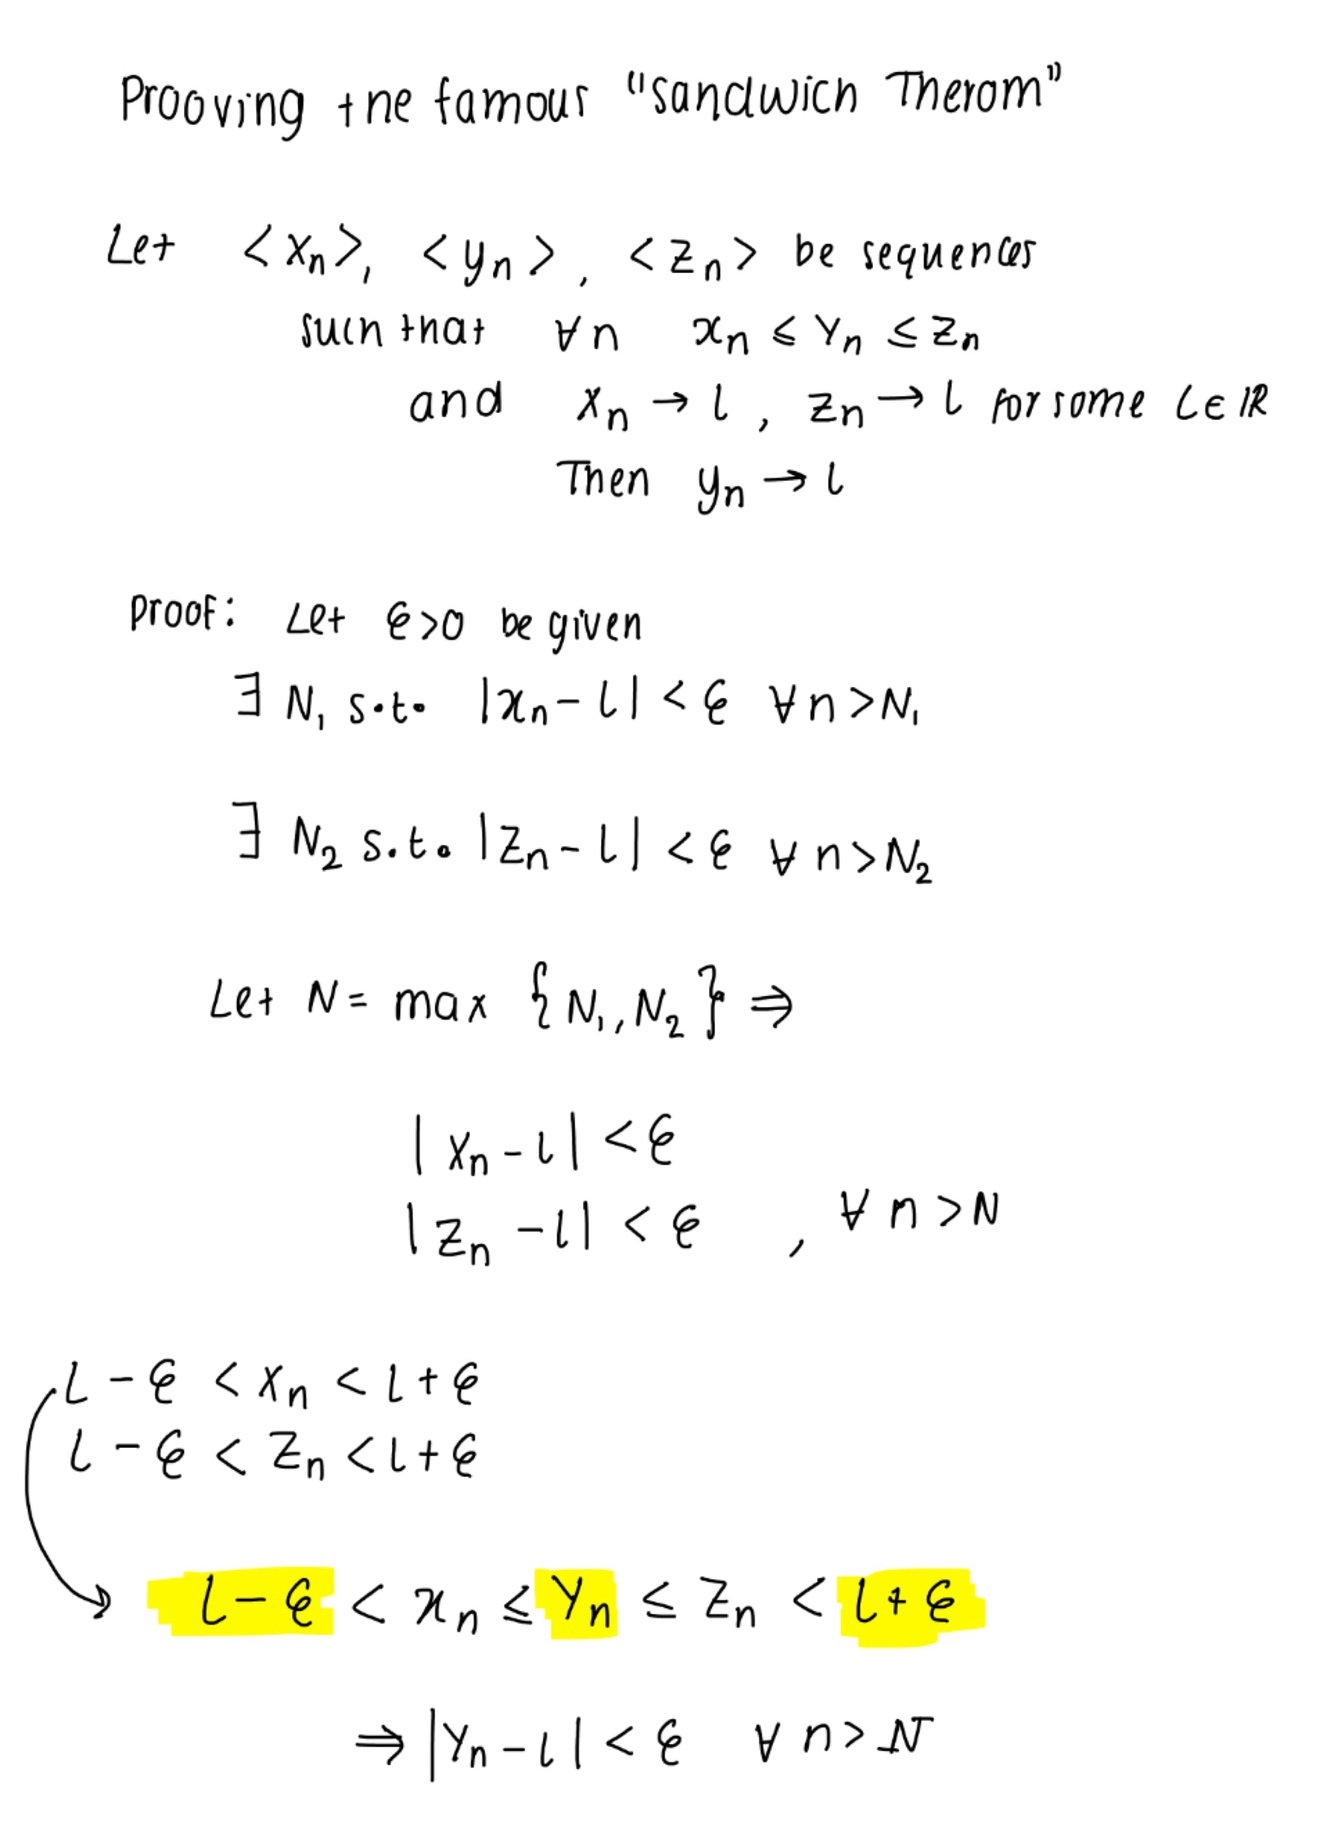 Prooving the famous "sandwich Therom"
Let <xn>, <yn>, <zn> be sequences
such that ∀n xn ≤ Yn ≤ Zn
and Xn → l, Zn → l for some L∈ℝ
Then yn → l
proof: Let ϵ>0 be given
∃ N₁ s.t. |xn - l| < ϵ ∀n > N₁
∃ N₂ s.t. |Zn - l| < ϵ ∀n > N₂
Let N = max {N₁, N₂} ⇒
|Xn - l| < ϵ
|Zn - l| < ϵ , ∀n > N
L - ϵ < Xn < l + ϵ
l - ϵ < Zn < l + ϵ
l - ϵ < xn ≤ Yn ≤ Zn < l + ϵ
⇒ |Yn - l| < ϵ ∀n > N